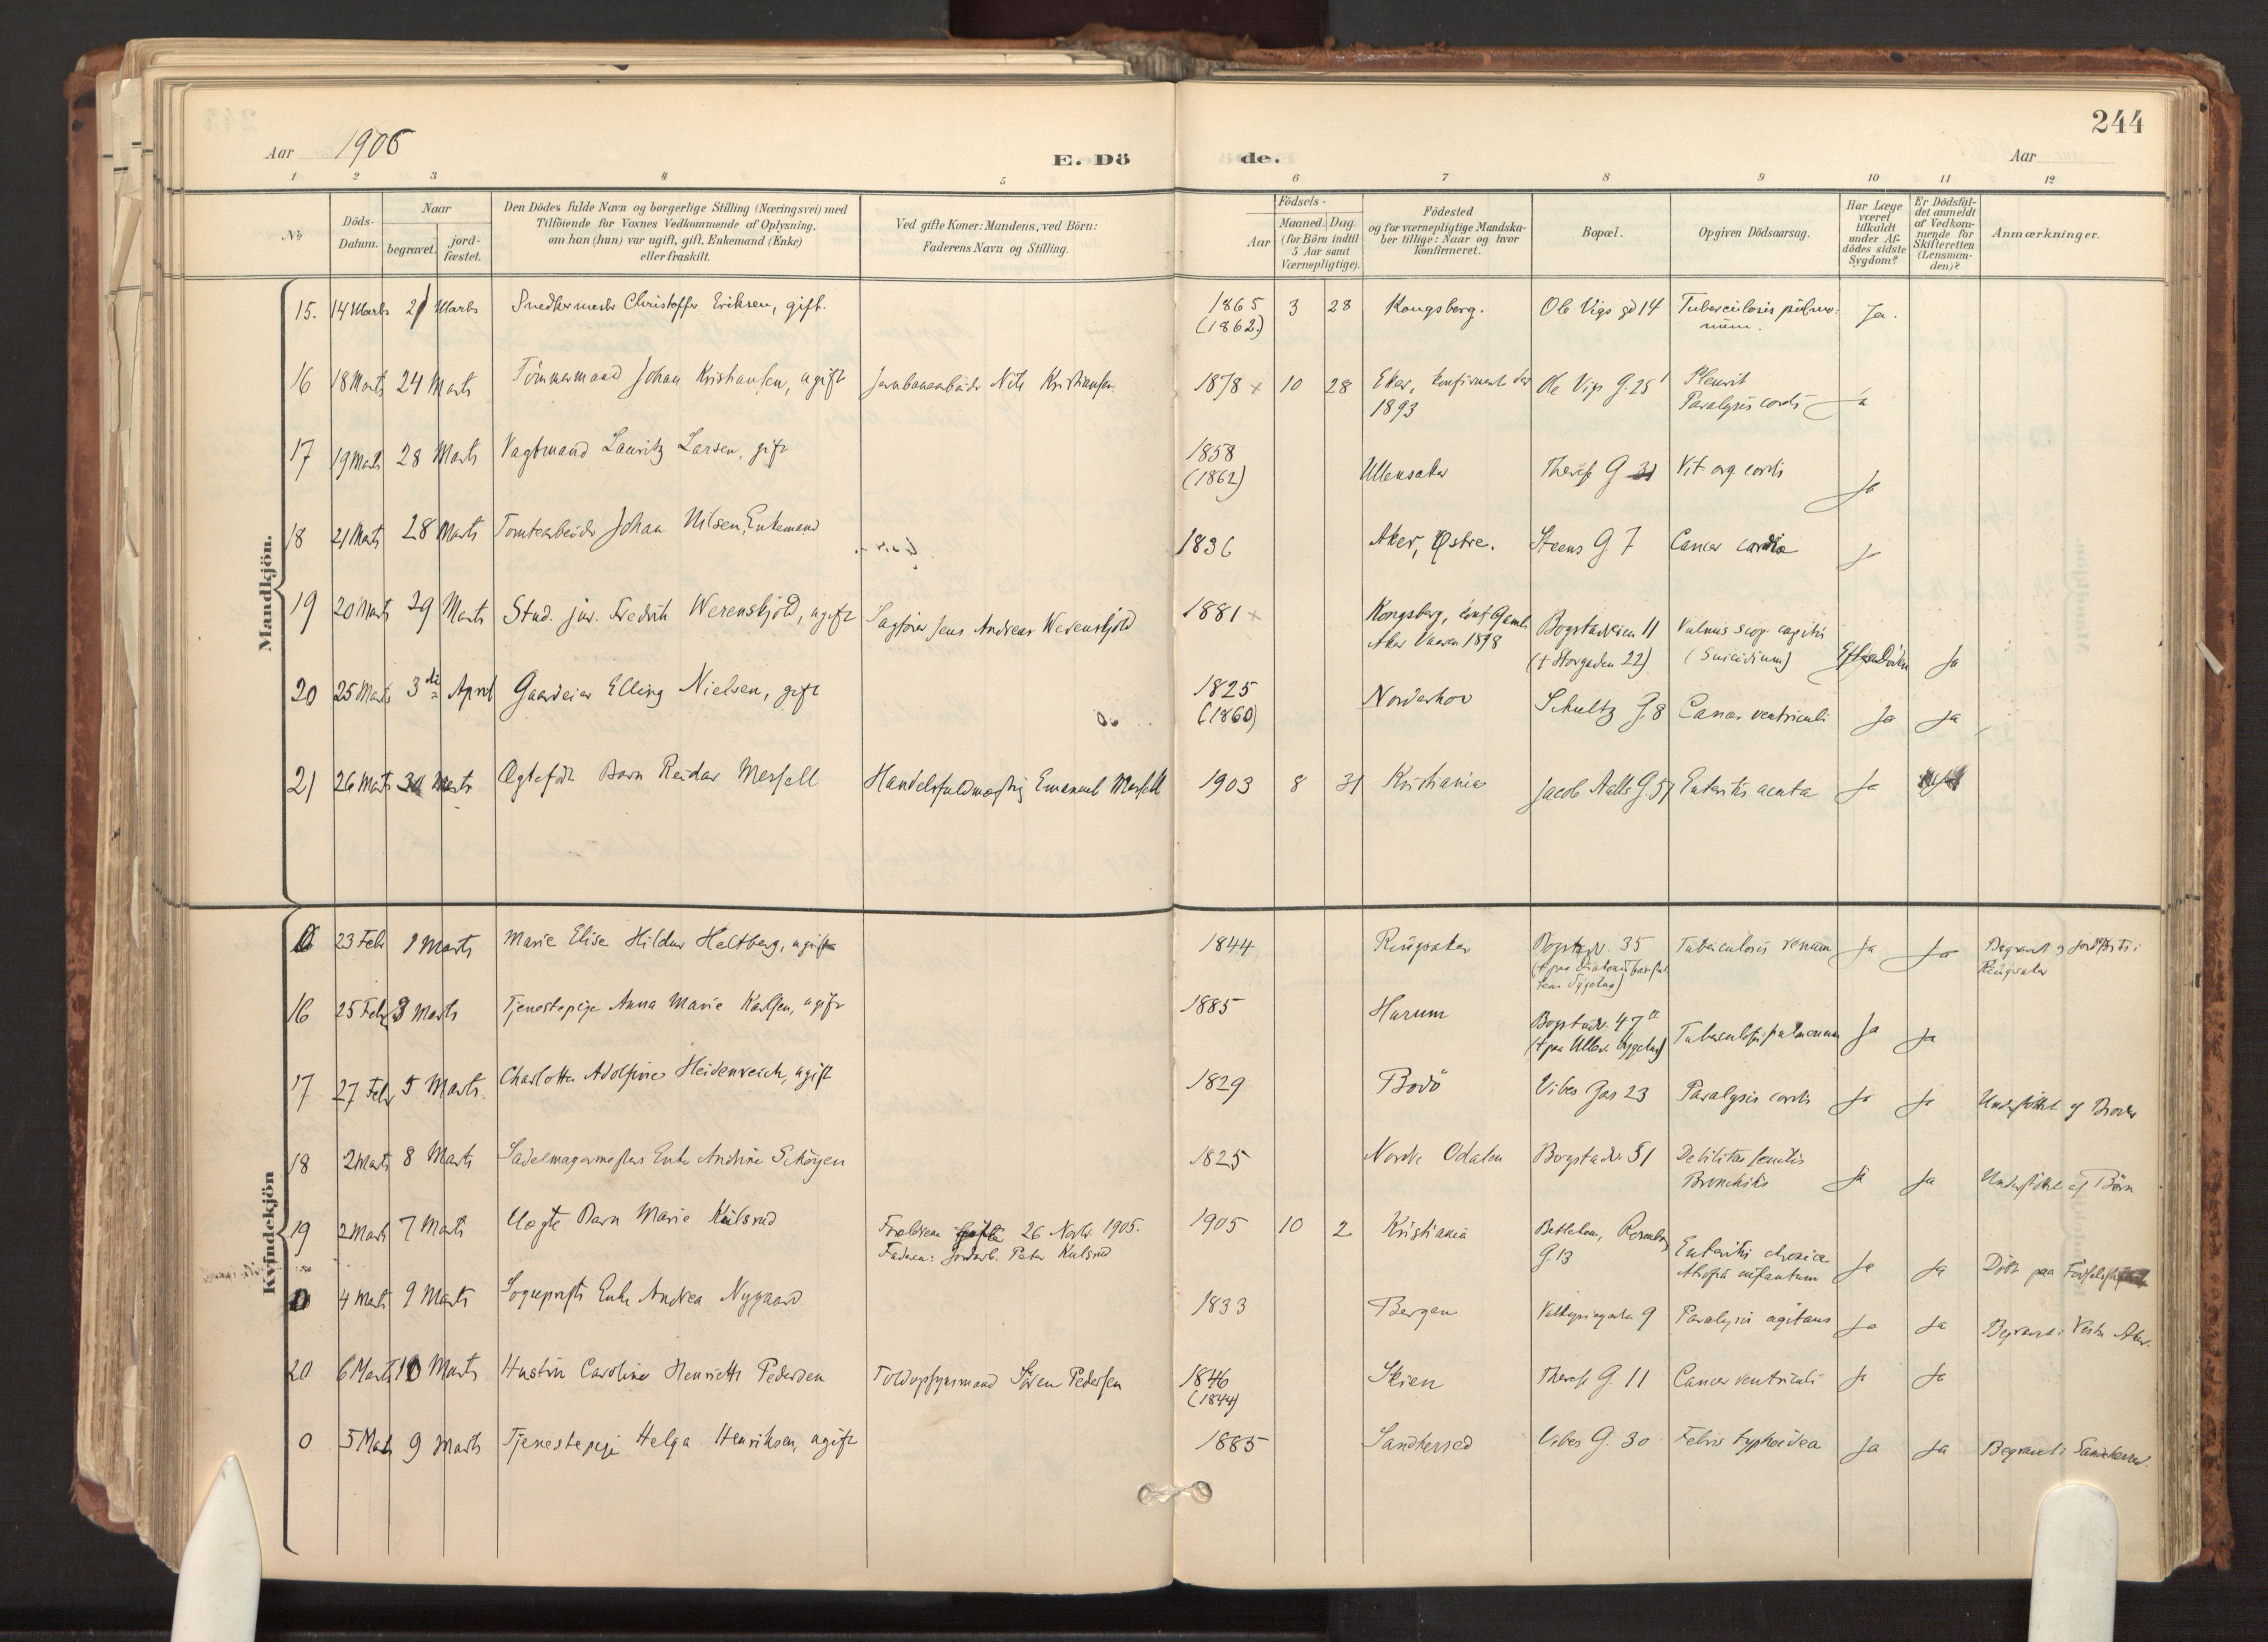 244
Aar 1906
E. Dö
de.
Aar
1 2 3 4 5 6 7 8 9 10 11 12
No
Döds-
Datum.
Naar
begravet.
jord-
fæstet.
Den Dödes fulde Navn og borgerlige Stilling (Næringsvei) med
Tilföiende for Voxnes Vedkommende af Oplysning,
om han (hun) var ugift, gift, Enkemand (Enke)
eller fraskilt.
Ved gifte Koner: Mandens, ved Börn:
Faderens Navn og Stilling.
Födsels-
Aar
Maaned. Dag.
(for Börn indtil
5 Aar samt
Værnepligtige).
Födested
og for værnepligtige Mandska-
ber tillige: Naar og hvor
konfirmeret.
Bopæl.
Opgiven Dödsaarsag.
Har Læge
været
tilkaldt
under Af-
dödes sidste
Sygdom?
Er Dödsfal-
det anmeldt
af Vedkom-
mende for
Skifteretten
(Lensman-
den)?
Anmærkninger.
Mandkjön.
15. 14 Marts 21 Marts Snedkermester Christoffer Eriksen, gift. 1865 3 28 Kongsberg. Ole Vigs gd 14 Tuberculosis pulmo- Ja.
(1862) num.
16 18 Marts 24 Marts Tömmermand Johan Kristiansen, ugift Jernbanearbeider Nils Kristiansen. 1878 x 10 28 Eker, konfirmert der Ole Vigs G. 25 Pleurit Ja
1893 Paralysis cordis
17 19 Marts 28 Marts Vagtmand Lauritz Larsen, gift 1858 Ullensaker Theres G 31 Vit. org. cordis Ja
(1862)
18 21 Marts 28 Marts Tomtearbeider Johan Nilsen, Enkemand 1836 Aker, Østre. Steens G. 7 Cancer cardiæ Ja
19 20 Marts 29 Marts Stud. jur. Fredrik Werenskjold, ugift Sagfører Jens Andreas Werenskjold 1881 x Kongsberg, konf. Gamle Bogstadveien 11 Vulnus scop. capitis Ja
Aker Vaaren 1898 (+ Storgaden 22) (Suicidium) Efter Døden
20 25 Marts 3die April Gaardeier Elling Nielsen, gift 1825 Norderhov Schultz G. 8 Cancer ventriculi Ja Ja
(1860)
21 26 Marts 31 Marts Ægtefödt Barn Reidar Mesfell Handelsfuldmægtig Emanuel Mesfell 1903 8 31 Kristiania Jacob Aalls G. 57 Enteritis acuta Ja
Kvindekjön
0 23 Feb 1 Marts Marie Elise Hildur Heltberg, ugift 1844 Ringsaker Bogstadv. 35 Tuberculosis renum Ja Ja Begravet og jordfæstet i
Ringsaker
16 25 Feb 3 Marts Tjenestepige Anna Marie Karlsen, ugift 1885 Hurum Bogstadv. 47 Tuberculosis pulmonum Ja Ja
(+ paa Ullev. Sygehus)
17 27 Feb 5 Marts Charlotte Adolfine Heidenreich, ugift 1829 Bodö Vibes Gas 23 Paralysis cordis Ja Ja Understöttet af Broder
18 2 Marts 8 Marts Sadelmagermesters Enke Andrine Schøyen 1825 Nordre Odalen Bogstadv. 51 Debilitas senilis Ja Ja Understöttet af Börn
Bronchitis
19 2 Marts 7 Marts Uægte Barn Marie Kulsrud Forældrene gifte 26 Novbr. 1905. 1905 10 2 Kristiania Betlehem, Rosenborg Enteritis chronica Ja Ja Död paa
Faderen: Jordarb. Peter Kulsrud G. 13 Atrofia infantum
0 4 Marts 9 Marts Sogneprests Enke Andrea Nygaard 1833 Bergen Valkyriegaden 9 Paralysis agitans Ja Ja Begravet i Vestre Aker.
20 6 Marts 10 Marts Hustru Caroline Henriette Pedersen Toldopsynsmand Sören Pedersen 1846 Skien Theres G. 11 Cancer ventriculi Ja Ja
(1844)
0 5 Mar 9 Marts Tjenestepige Helga Henriksen, ugift 1885 Sandherred Vibes G. 30 Febris typhoidea Ja Ja Begravet i Sandeherred.